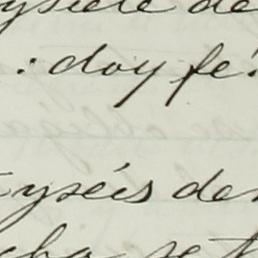 ysiete de
: doy fé.
yséis de
cha se